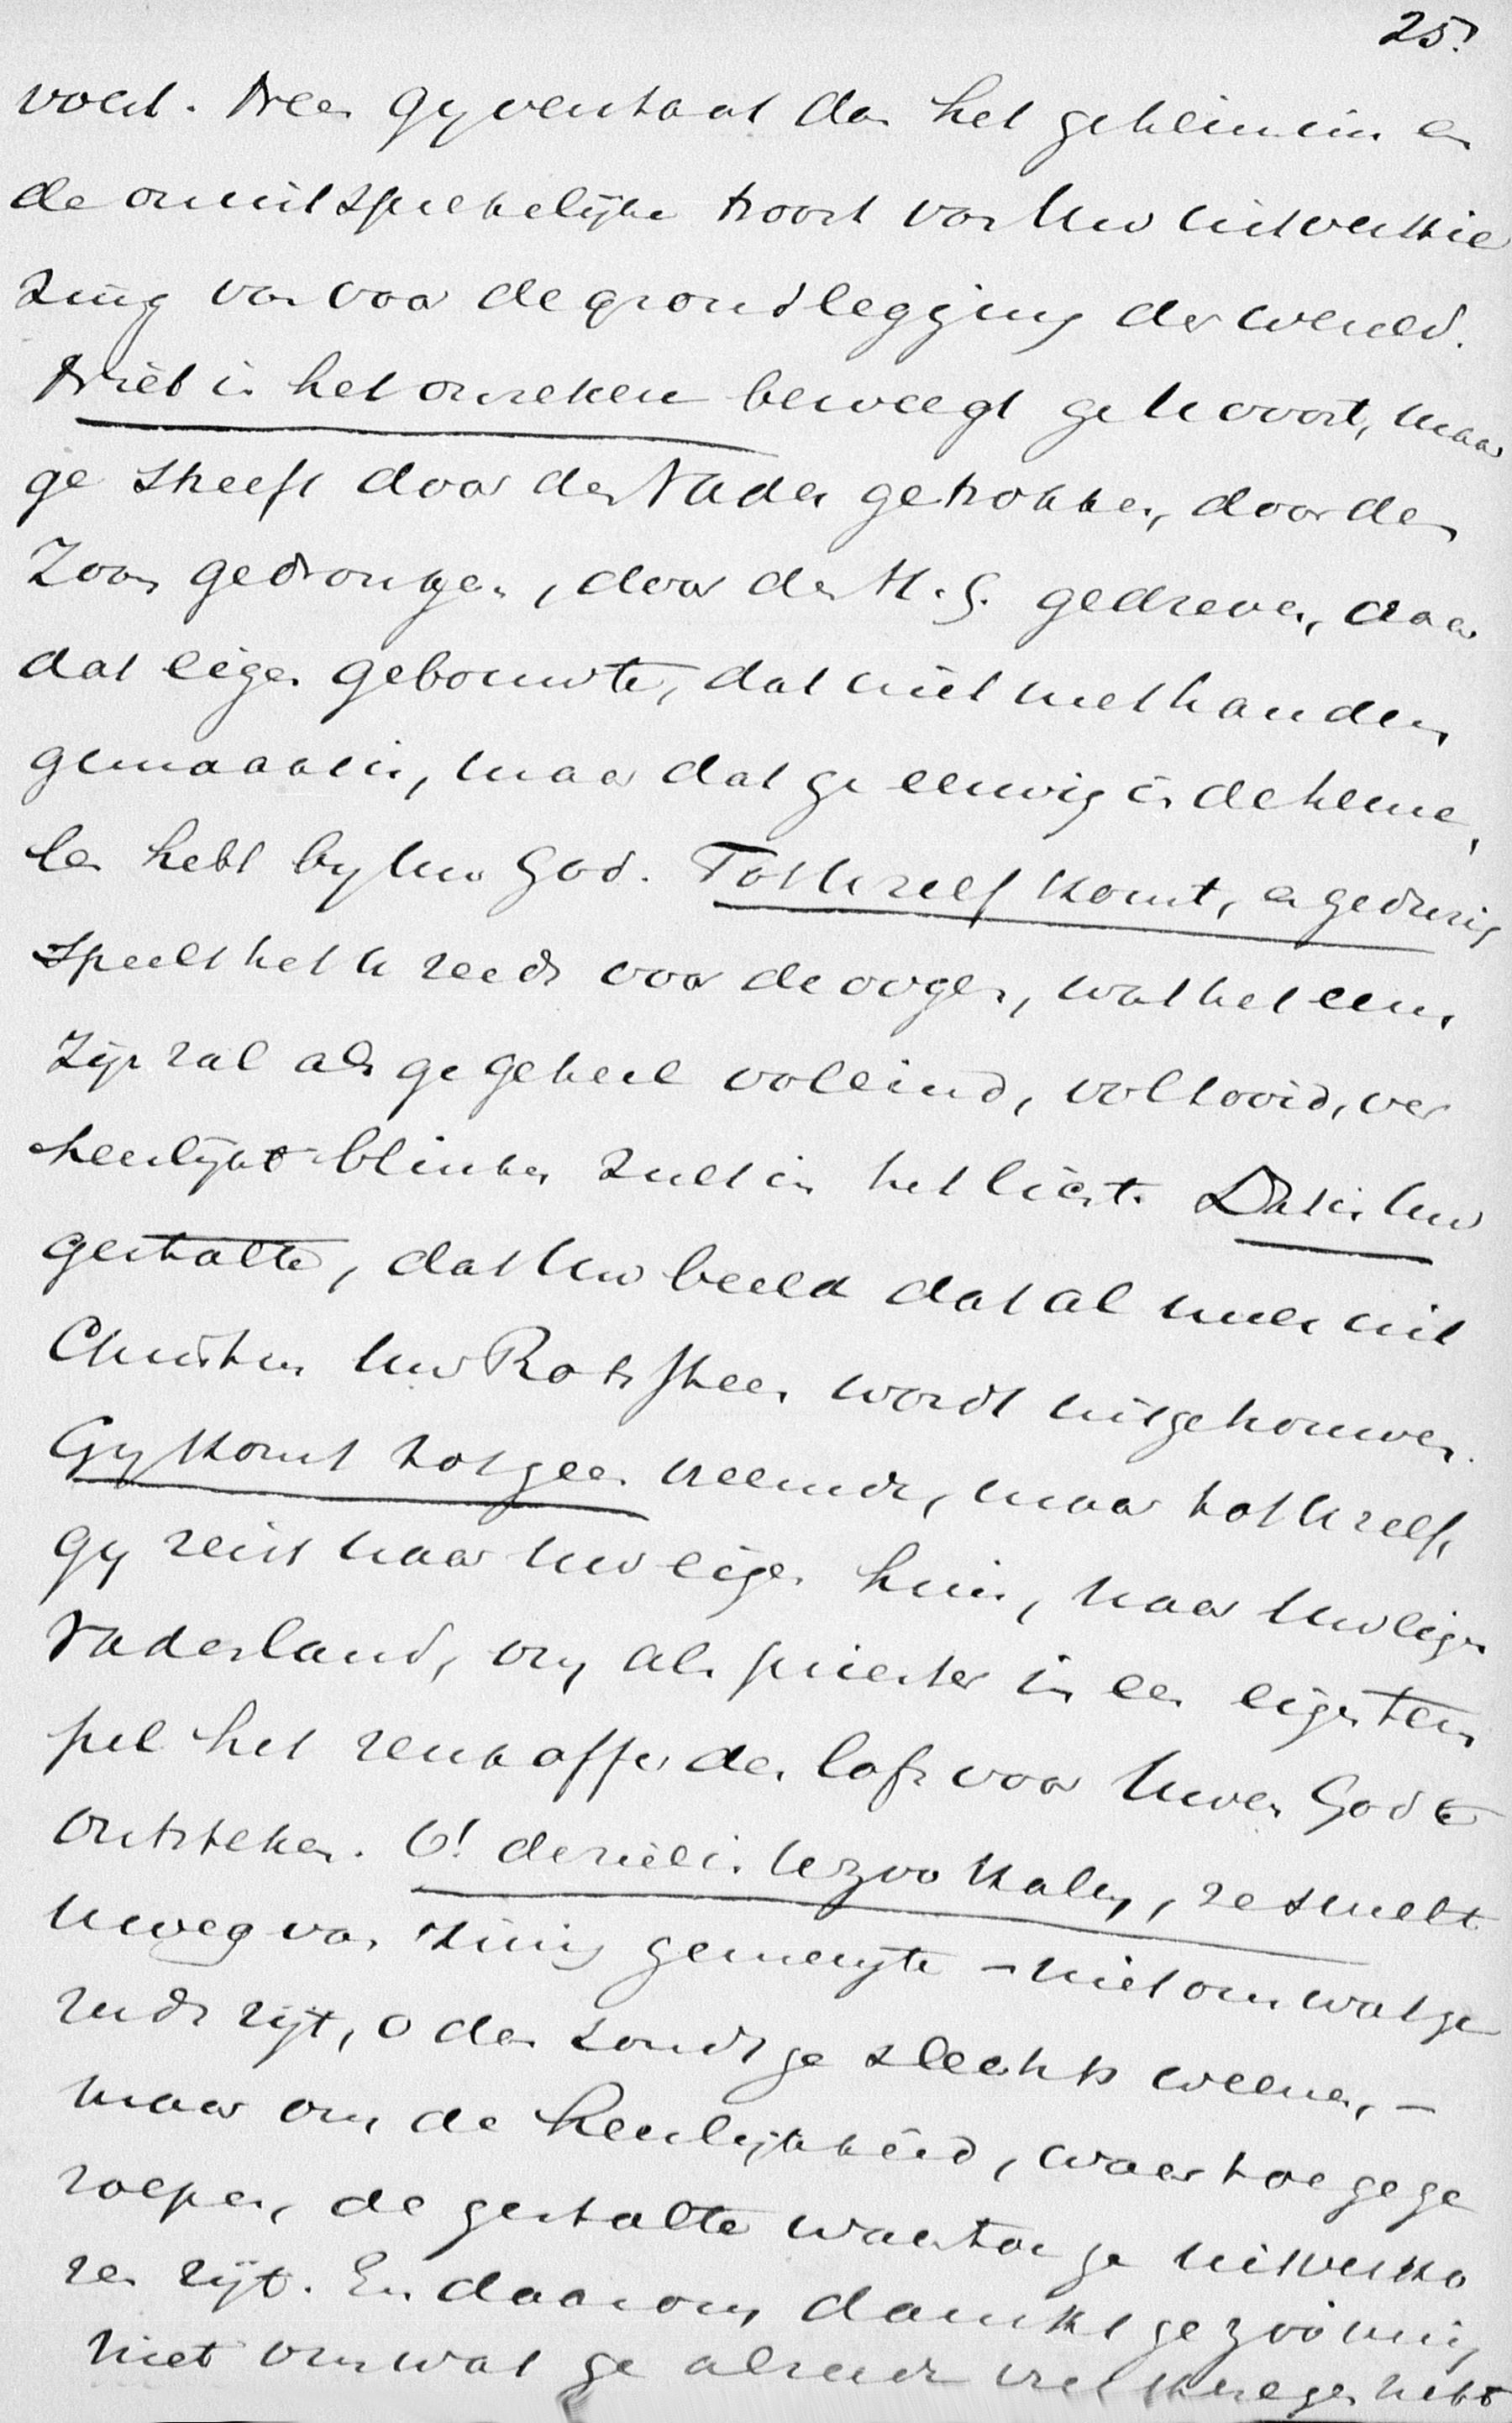 25.
voelt. Neen gy verstaat dan het geheimnis en
de onuitsprekelijke troost van Uw uitverkie
zing van voor de grondlegging der wereld.
Niet in het onzekere beweegt ge U voort, maar
ge streeft door den Vader getrokken, door den
Zoon gedrongen, door den H. G. gedreven, naar
dat eigen gebouwte, dat niet met handen
gemaakt is, maar dat ge eeuwig in de heme
len hebt by Uw God. Tot U zelf komt, en gedurig
speelt het U reeds voor de oogen, wat het eens
zijn zal als ge geheel voleind, voltooid, ver
heerlijkt blinken zult in het licht. Dat is Uw
gestalte, dat Uw beeld dat al meer uit
Christus Uw Rotssteen wordt uitgehouwen.
Gy komt tot geen vreemde, maar tot U zelf,
gy reist naar Uw eigen huis, naar Uw eigen
Vaderland, om als priester in een eigen tem
pel het reukoffer des lofs voor Uwen God te
ontsteken. O! de ziel is U zoo kalm, ze smelt
U weg van innig geneugte – niet om wat ge
reeds zijt, o dan zoudt ge slechts weenen, –
maar om de heerlijkheid, waartoe ge ge
roepen, de gestalte waartoe ge uitverko
ren zijt. En daarom dankt ge zoo innig
niet om wat ge alreede verkregen hebt